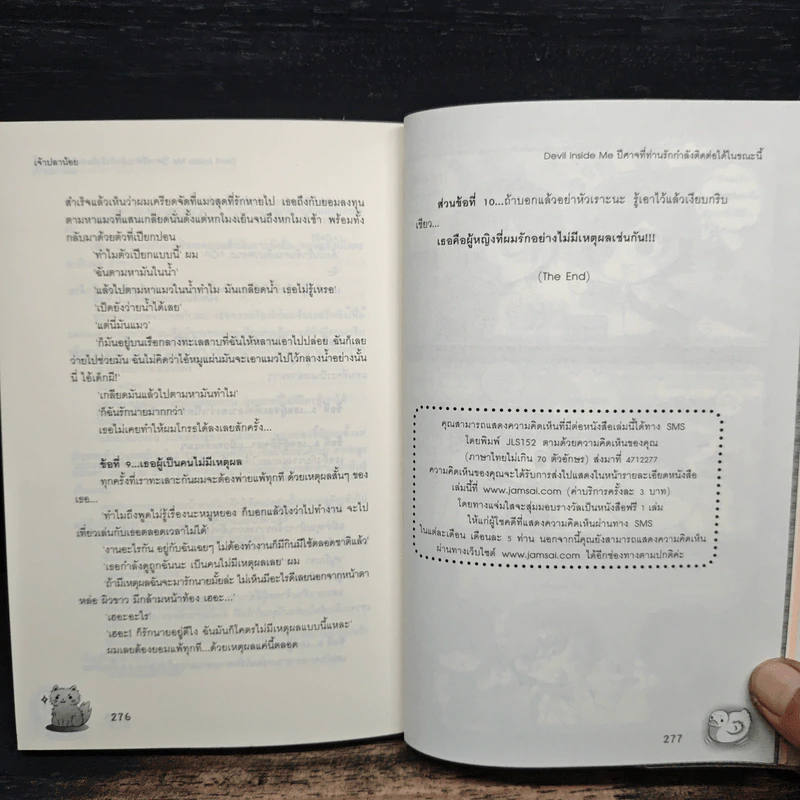 เจ้าปลาน้อย
สำเร็จแล้วเห็นว่าผมเครียดจัดที่แมวสุดที่รักหายไป เธอถึงกับยอมลงทุน
ตามหาแมวที่แสนเกลียดนั่นตั้งแต่หกโมงเย็นจนถึงหกโมงเช้า พร้อมทั้ง
กลับมาด้วยตัวที่เปียกปอน
'ทำไมตัวเปียกแบบนี้' ผม
'ฉันตามหามันในน้ำ'
'แล้วไปตามหาแมวในน้ำทำไม มันเกลียดน้ำ เธอไม่รู้เหรอ'
'เป็ดยังว่ายน้ำได้เลย'
'แต่นี่มันแมว'
'ก็มันอยู่บนเรือกลางทะเลสาบที่ฉันให้หลานเอาไปปล่อย ฉันก็เลย
ว่ายไปช่วยมัน ฉันไม่คิดว่าไอ้หมูแผ่นมันจะเอาแมวไปไว้กลางน้ำอย่างนั้น
นี่ ไอ้เด็กผี!'
'เกลียดมันแล้วไปตามหามันทำไม'
'ก็ฉันรักนายมากกว่า'
เธอไม่เคยทำให้ผมโกรธได้ลงเลยสักครั้ง...
ข้อที่ 9...เธอผู้เป็นคนไม่มีเหตุผล
ทุกครั้งที่เราทะเลาะกันผมจะต้องพ่ายแพ้ทุกที ด้วยเหตุผลสั้นๆ ของ
เธอ...
'ทำไมถึงพูดไม่รู้เรื่องนะหมูหยอง ก็บอกแล้วไงว่าไปทำงาน จะไป
เที่ยวเล่นกับเธอตลอดเวลาไม่ได้'
'งานอะไรกัน อยู่กับฉันเฉยๆ ไม่ต้องทำงานก็มีกินมีใช้ตลอดชาติแล้ว'
'เธอกำลังดูถูกฉันนะ เป็นคนไม่มีเหตุผลเลย' ผม
'ถ้ามีเหตุผลฉันจะมารักนายมั้ยล่ะ ไม่เห็นมีอะไรดีเลยนอกจากหน้าตา
หล่อ ผิวขาว มีกล้ามหน้าท้อง เฮอะ...'
'เฮอะอะไร'
'เฮอะ! ก็รักนายอยู่ดีไง ฉันมันก็โคตรไม่มีเหตุผลแบบนี้แหละ'
ผมเลยต้องยอมแพ้ทุกที...ด้วยเหตุผลแค่นี้ตลอด
276
Devil Inside Me ปีศาจที่ท่านรักกำลังติดต่อได้ในขณะนี้
ส่วนข้อที่ 10...ถ้าบอกแล้วอย่าหัวเราะนะ รู้เอาไว้แล้วเงียบกริบ
เชียว...
เธอคือผู้หญิงที่ผมรักอย่างไม่มีเหตุผลเช่นกัน!!!
(The End)
คุณสามารถแสดงความคิดเห็นที่มีต่อหนังสือเล่มนี้ได้ทาง SMS
โดยพิมพ์ JLS152 ตามด้วยความคิดเห็นของคุณ
(ภาษาไทยไม่เกิน 70 ตัวอักษร) ส่งมาที่ 4712277
ความคิดเห็นของคุณจะได้รับการส่งไปแสดงในหน้ารายละเอียดหนังสือ
เล่มนี้ที่ www.jamsai.com (ค่าบริการครั้งละ 3 บาท)
โดยทางแจ่มใสจะสุ่มมอบรางวัลเป็นหนังสือฟรี 1 เล่ม
ให้แก่ผู้โชคดีที่แสดงความคิดเห็นผ่านทาง SMS
ในแต่ละเดือน เดือนละ 5 ท่าน นอกจากนี้คุณยังสามารถแสดงความคิดเห็น
ผ่านทางเว็บไซต์ www.jamsai.com ได้อีกช่องทางตามปกติค่ะ
277